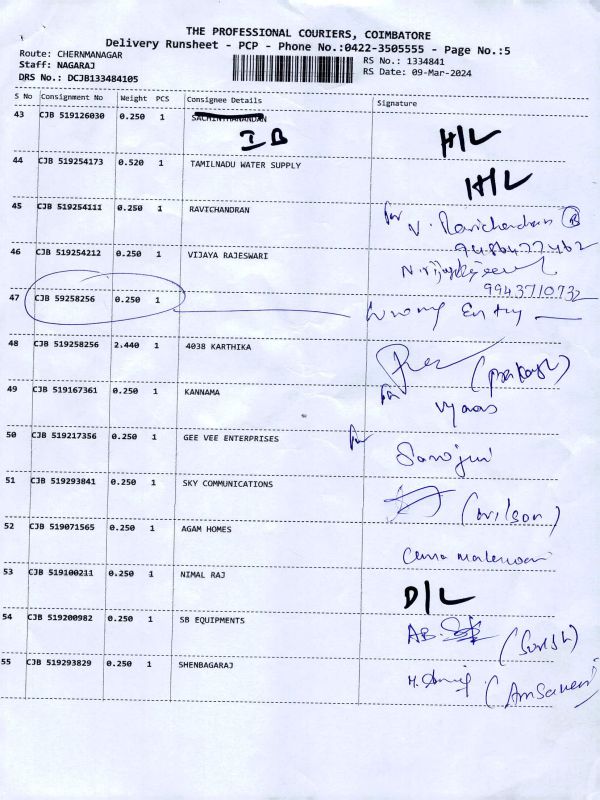 THE PROFESSIONAL COURIERS, COIMBATORE
Delivery Runsheet - PCP - Phone No.:0422-3505555 - Page No.:5
Route: CHERNMANAGAR
Staff: NAGARAJ
DRS No.: DCJB133484105
RS No.: 1334841
RS Date: 09-Mar-2024
S No Consignment No Weight PCS Consignee Details Signature
43 CJB 519126030 0.250 1 SACHINTHANANDAN H/L
I B
44 CJB 519254173 0.520 1 TAMILNADU WATER SUPPLY H/L
45 CJB 519254111 0.250 1 RAVICHANDRAN for N. Ravichandran
9486477462
46 CJB 519254212 0.250 1 VIJAYA RAJESWARI
9943710732
47 CJB 59258256 0.250 1 Wrong Entry
48 CJB 519258256 2.440 1 4038 KARTHIKA
49 CJB 519167361 0.250 1 KANNAMA for Vyaas
50 CJB 519217356 0.250 1 GEE VEE ENTERPRISES for Sarojini
51 CJB 519293841 0.250 1 SKY COMMUNICATIONS (wilson)
52 CJB 519071565 0.250 1 AGAM HOMES
53 CJB 519100211 0.250 1 NIMAL RAJ D/L
54 CJB 519200982 0.250 1 SB EQUIPMENTS AB.
55 CJB 519293829 0.250 1 SHENBAGARAJ